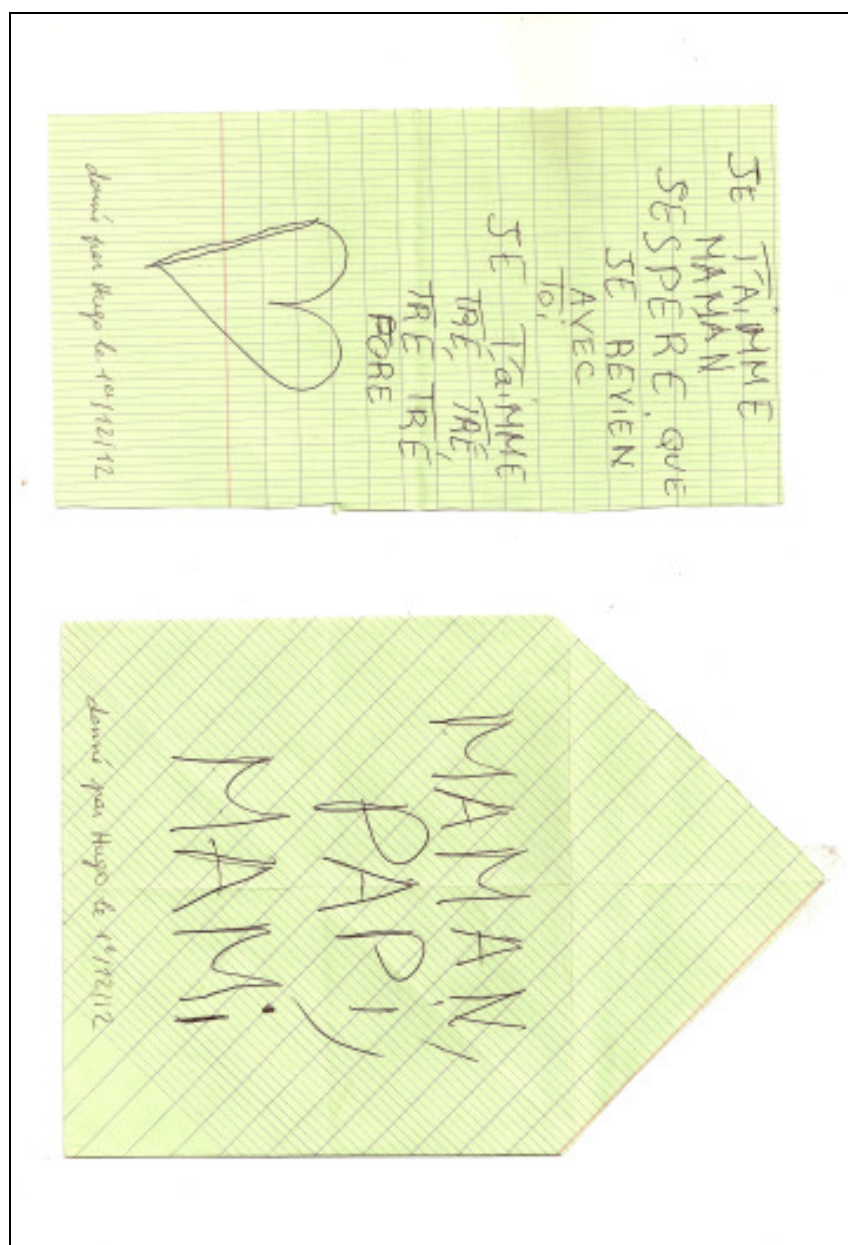 JE T'AIMME
MAMAN
JESPERE QUE
JE REVIEN
AVEC
TOi
JE T'aiMME
TRÉ TRÉ
TRÉ TRÉ
FORE
donné par Hugo le 1er/12/12
MAMAN,
PAPi,
MAMi
donné par Hugo le 1er/12/12